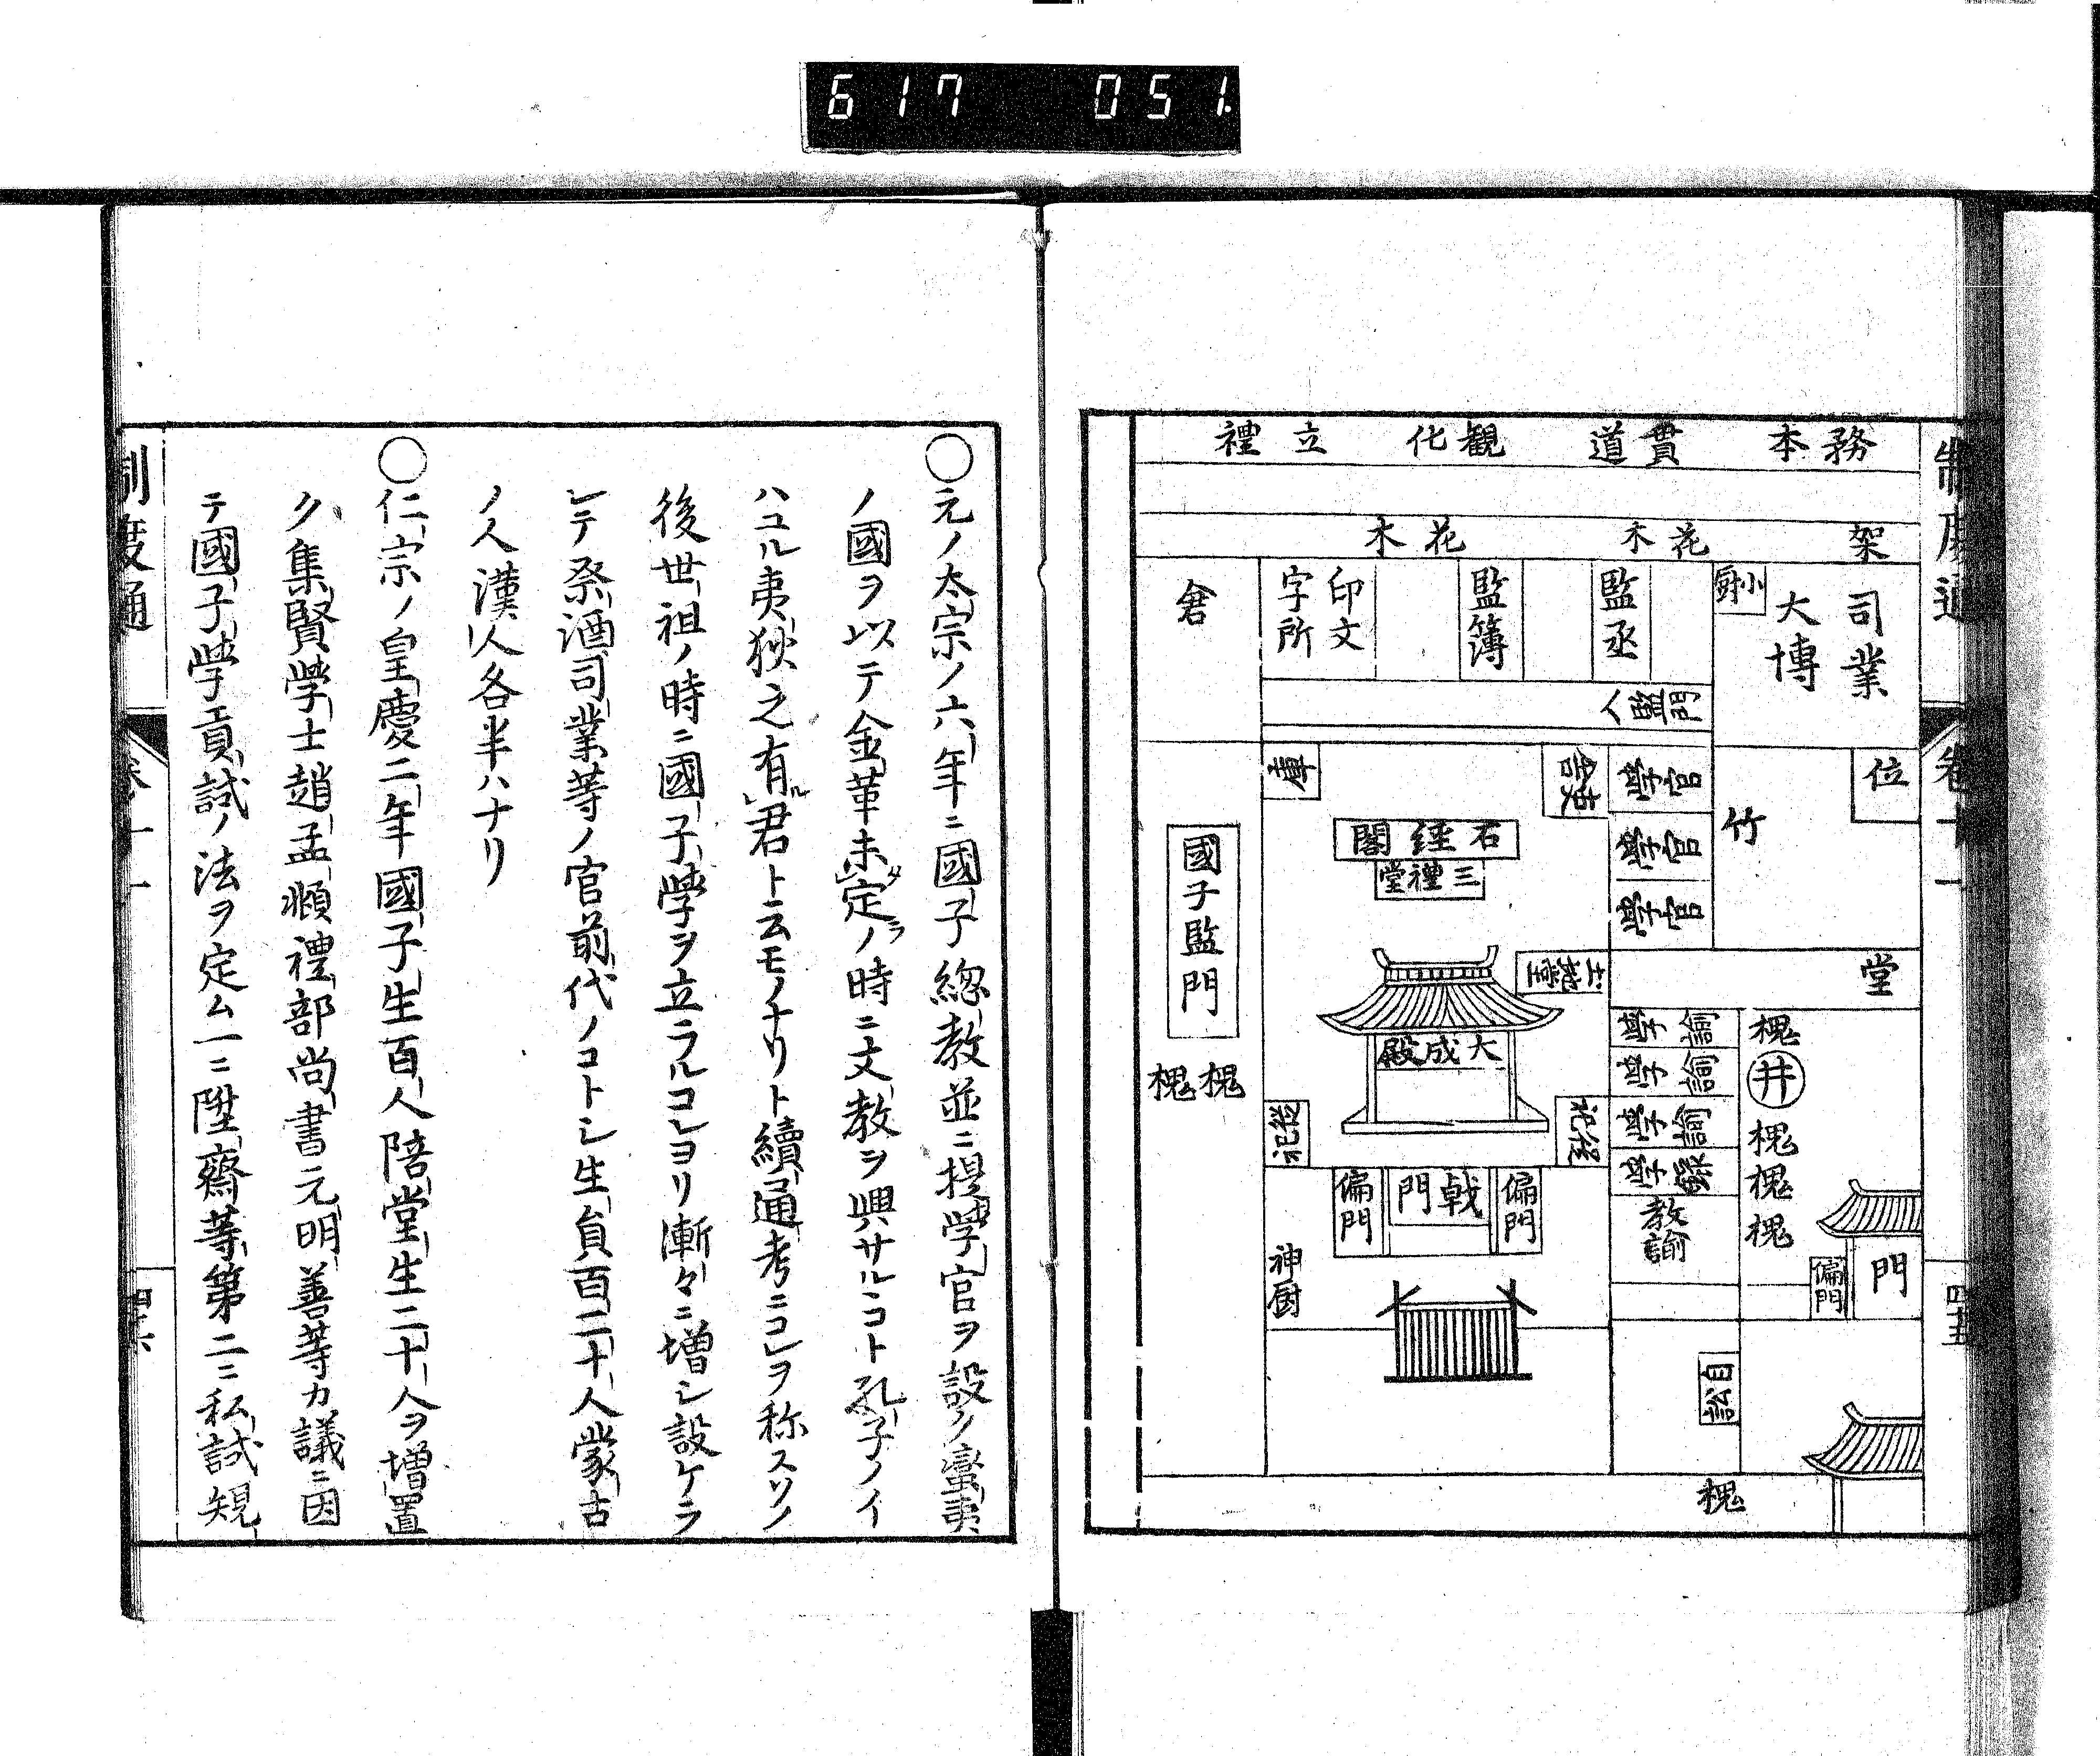 617 051
制度通
卷十一
四十五
務本
貫道
観化
立禮
架
花木
花木
司業
大博
厨
小
監丞
監簿
印文
字所
倉
門監人
位
竹
学官
学官
学官
庫
石経閣
三禮堂
國子監門
槐槐
堂
土地堂
大成殿
従祀
従祀
学諭
学諭
学諭
学録
教諭
槐
井
槐
槐
槐
偏門
戟門
偏門
神厨
門
偏門
自訟
槐
〇元ノ太宗ノ六年ニ國子総教並ニ提挙学官ヲ設ク蛮夷
ノ國ヲ以テ金革未定ノ時ニ文教ヲ興サルコト孔子ノイ
ハユル夷狄之有君ト云モノナリト續通考ニコレヲ称スソノ
後世祖ノ時ニ國子学ヲ立ラルコレヨリ漸々ニ増シ設ケラ
レテ祭酒司業等ノ官前代ノコトシ生員百二十人蒙古
ノ人漢人各半ハナリ
〇仁宗ノ皇慶二年國子生百人陪堂生二十人ヲ増置
ク集賢学士趙孟頫禮部尚書元明善等カ議ニ因
テ國子学貢試ノ法ヲ定ム一ニ陞齋等第二ニ私試規
制度通
卷十一
四十六